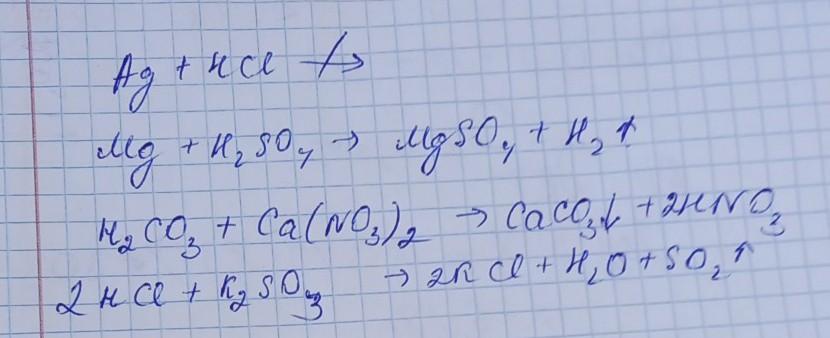 Ag + HCl ↛
Mg + H₂SO₄ → MgSO₄ + H₂↑
H₂CO₃ + Ca(NO₃)₂ → CaCO₃↓ + 2HNO₃
2HCl + K₂SO₃ → 2KCl + H₂O + SO₂↑